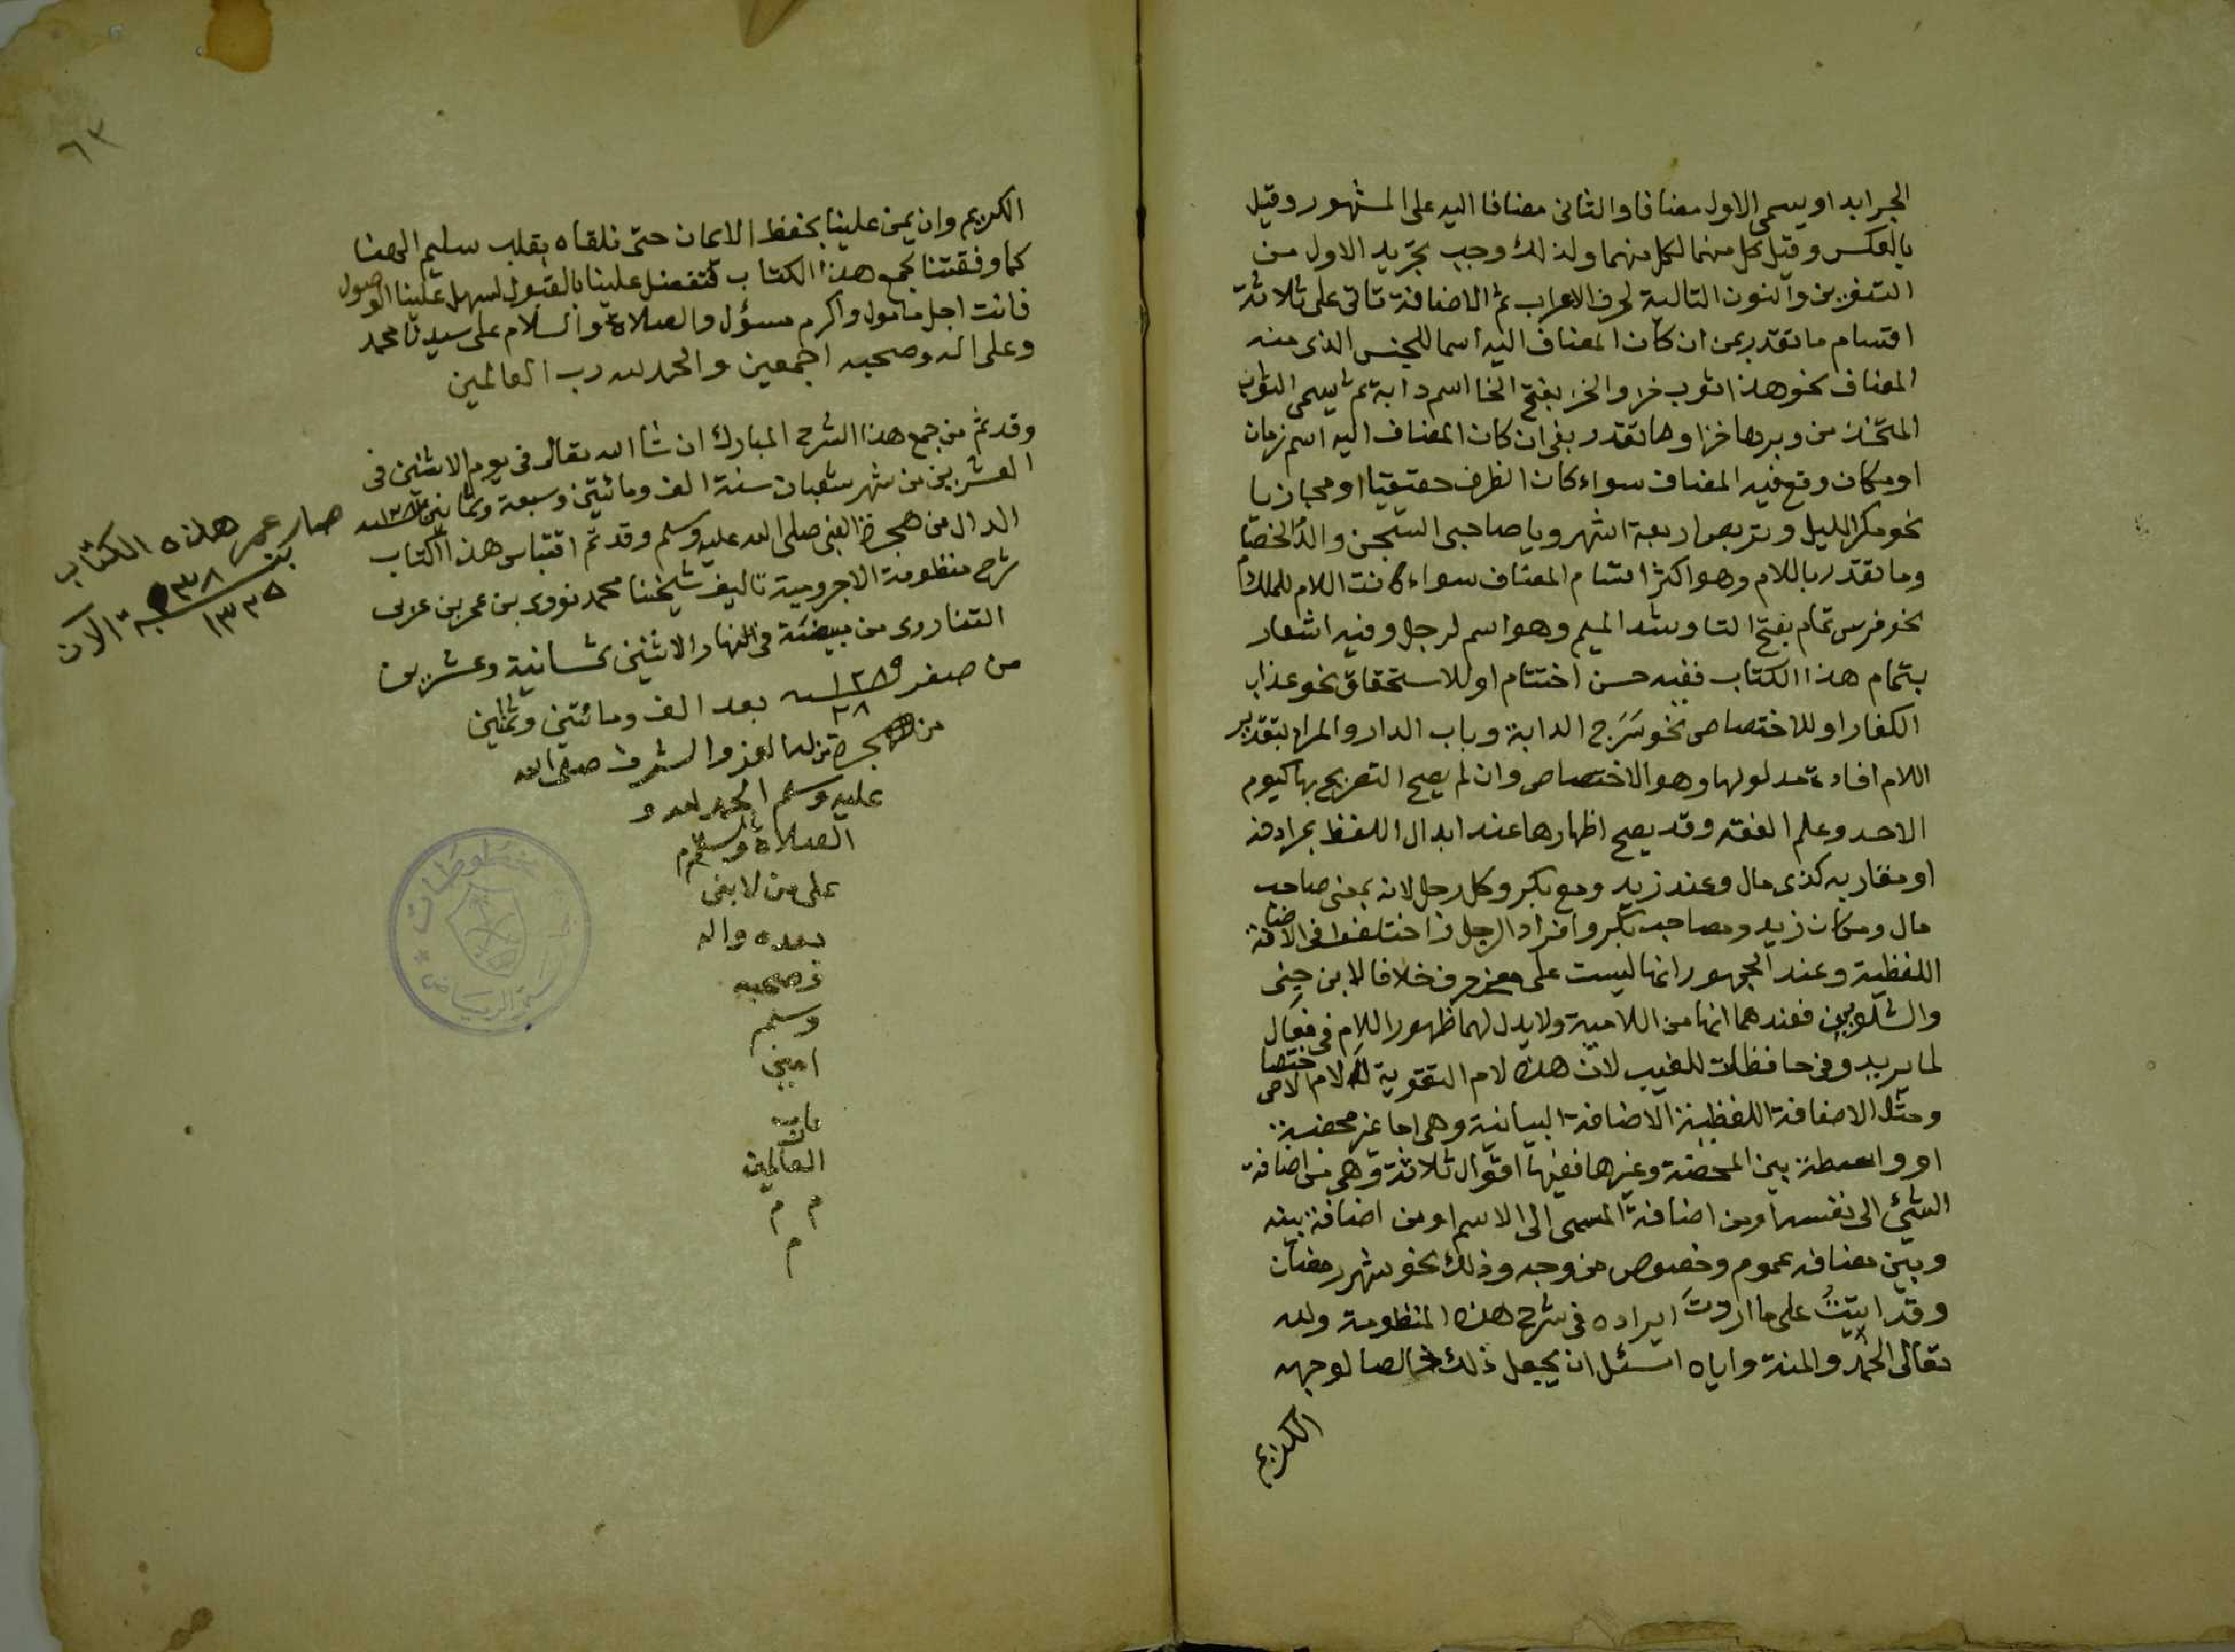 الجر ابدا ويسمى الاول مضافا والثانى مضافا اليه على المشهور وقيل
بالعكس وقيل كل منهما لكل منهما ولذلك وجب تجريد الاول من
التنوين والنون التالية لحرف الاعراب ثم الاضافة تاتى على ثلاثة
اقسام ما تقدر بمن ان كان المضاف اليه اسما للجنس الذى منه
المضاف نحو هذا ثوب خز والخز بفتح الخا اسم دابة ثم يسمى الثوب
المتخذ من وبرها خزا وما تقدر بفى ان كان المضاف اليه اسم زمان
او مكان وقع فيه المضاف سواء كان الظرف حقيقيا او مجازيا
نحو مكر الليل وتربص اربعة اشهر ويا صاحبى السجن والدّ الخصام
وما تقدر باللام وهو اكثر اقسام المضاف سواء كانت اللام للملك
نحو فرس تمام بفتح التا وشد الميم وهو اسم لرجل وفيه اشعار
بتمام هذا الكتاب ففيه حسن اختتام او للاستحقاق نحو عذاب
الكفار او للاختصاص نحو سَرَج الدابة وباب الدار والمراد بتقدير
اللام افادة مدلولها وهو الاختصاص وان لم يصح التصريح بها كيوم
الاحد وعلم الفقه وقد يصح اظهارها عند ابدال اللفظ بمرادفه
او مقاربه كذى مال وعند زيد ومع بكر وكل رجل لانه بمعنى صاحب
مال ومكان زيد ومصاحب بكر وافراد الرجل واختلفوا فى الاضافة
اللفظية وعند الجمهور انها ليست على معنى حرف خلافا لابن جنى
والشلوبين فعندهما انها من اللامية ولا يدل لهما ظهور اللام فى فعال
لما يريد وفى حافظات للغيب لان هذه لام التقوية لا لام الاختصاص
ومثل الاضافة اللفظية الاضافة البيانية وهى اما غير محضة
او واسطة بين المحضة وغيرها ففيها اقوال ثلاثة وهى من اضافة
الشئ الى نفسه او من اضافة المسمى الى الاسم او من اضافة بينه
وبين مضافه عموم وخصوص من وجه وذلك نحو شهر رمضان
وقد اتيتُ على ما اردت ايراده فى شرح هذه المنظومة ولله
تعالى الحمد والمنة واياه اسئل ان يجعل ذلك خالصا لوجهه
الكريم
٦٣
الكريم وان يمن علينا بحفظ الايمان حتى نلقاه بقلب سليم الهنا
كما وفقتنا لجمع هذا الكتاب فتفضل علينا بالقبول لسهل علينا الوصول
فانت اجل مامول واكرم مسؤل والصلاة والسلام على سيدنا محمد
وعلى اله وصحبه اجمعين والحمد لله رب العالمين
وقد تم من جمع هذا الشرح المبارك ان شا الله تعالى فى يوم الاثنين فى
العشرين من شهر شعبان سنة الف ومائتين وسبعة وثمانين
الدال من هجرة النبى صلى الله عليه وسلم وقد تم اقتباس هذا الكتاب
شرح منظومة الاجرومية تاليف شيخنا محمد نووى بن عمر بن عربى
التناروى من مبيضته فى النهار الاثنين ثمانية وعشرين
من صفر ١٢٨٩ سنة بعد الف ومائتين وثمانين
٢٨
من هجرة من له العز والشرف صلى الله
عليه وسلم الحمد لله و
الصلاة والسلام
على من لا نبى
بعده واله
وصحبه
وسلم
امين
يا رب
العالمين
م م
م
صار عمر هذه الكتاب
١٣٣٥ سنة الان
مخطوطات
الرياض